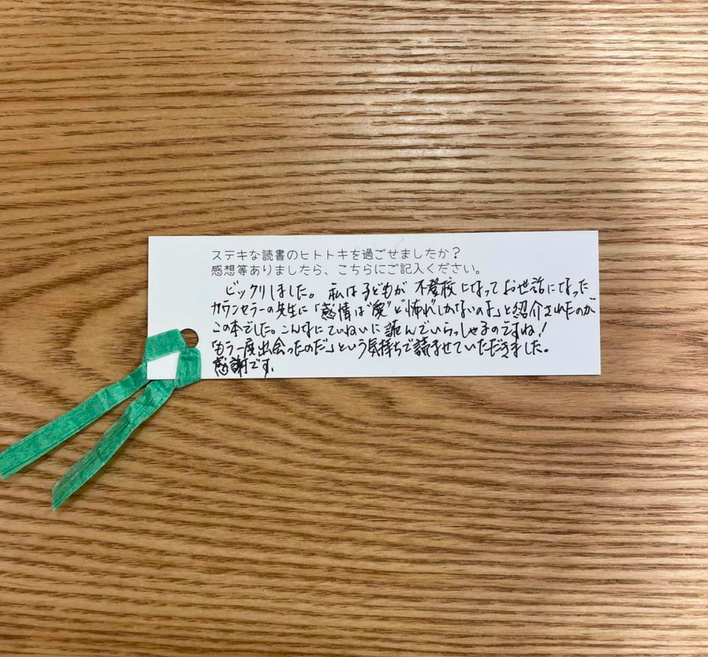 ステキな読書のヒトトキを過ごせましたか？
感想等ありましたら、こちらにご記入ください。
ビックリしました。私は子どもが不登校になってお世話になった
カウンセラーの先生に「感情は"愛"と"怖れ"しかないのよ」と紹介されたのが
この本でした。こんなにていねいに読んでいらっしゃるのですね！
「もう一度出会ったのだ」という気持ちで読ませていただきました。
感謝です。